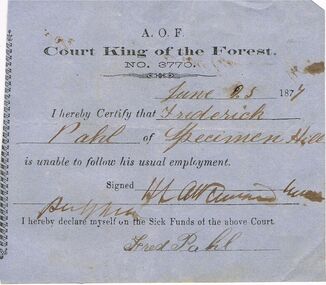 A. O. F.
Court King of the Forest.
NO. 3770.
June 25 1877
I hereby Certify that Frederick
Pahl of Specimen Hill
is unable to follow his usual employment.
Signed
I hereby declare myself on the Sick Funds of the above Court.
Fred Pahl